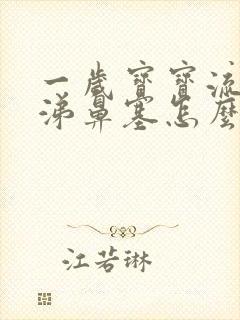 一歲寶寶流
涕鼻塞怎麼
江若琳